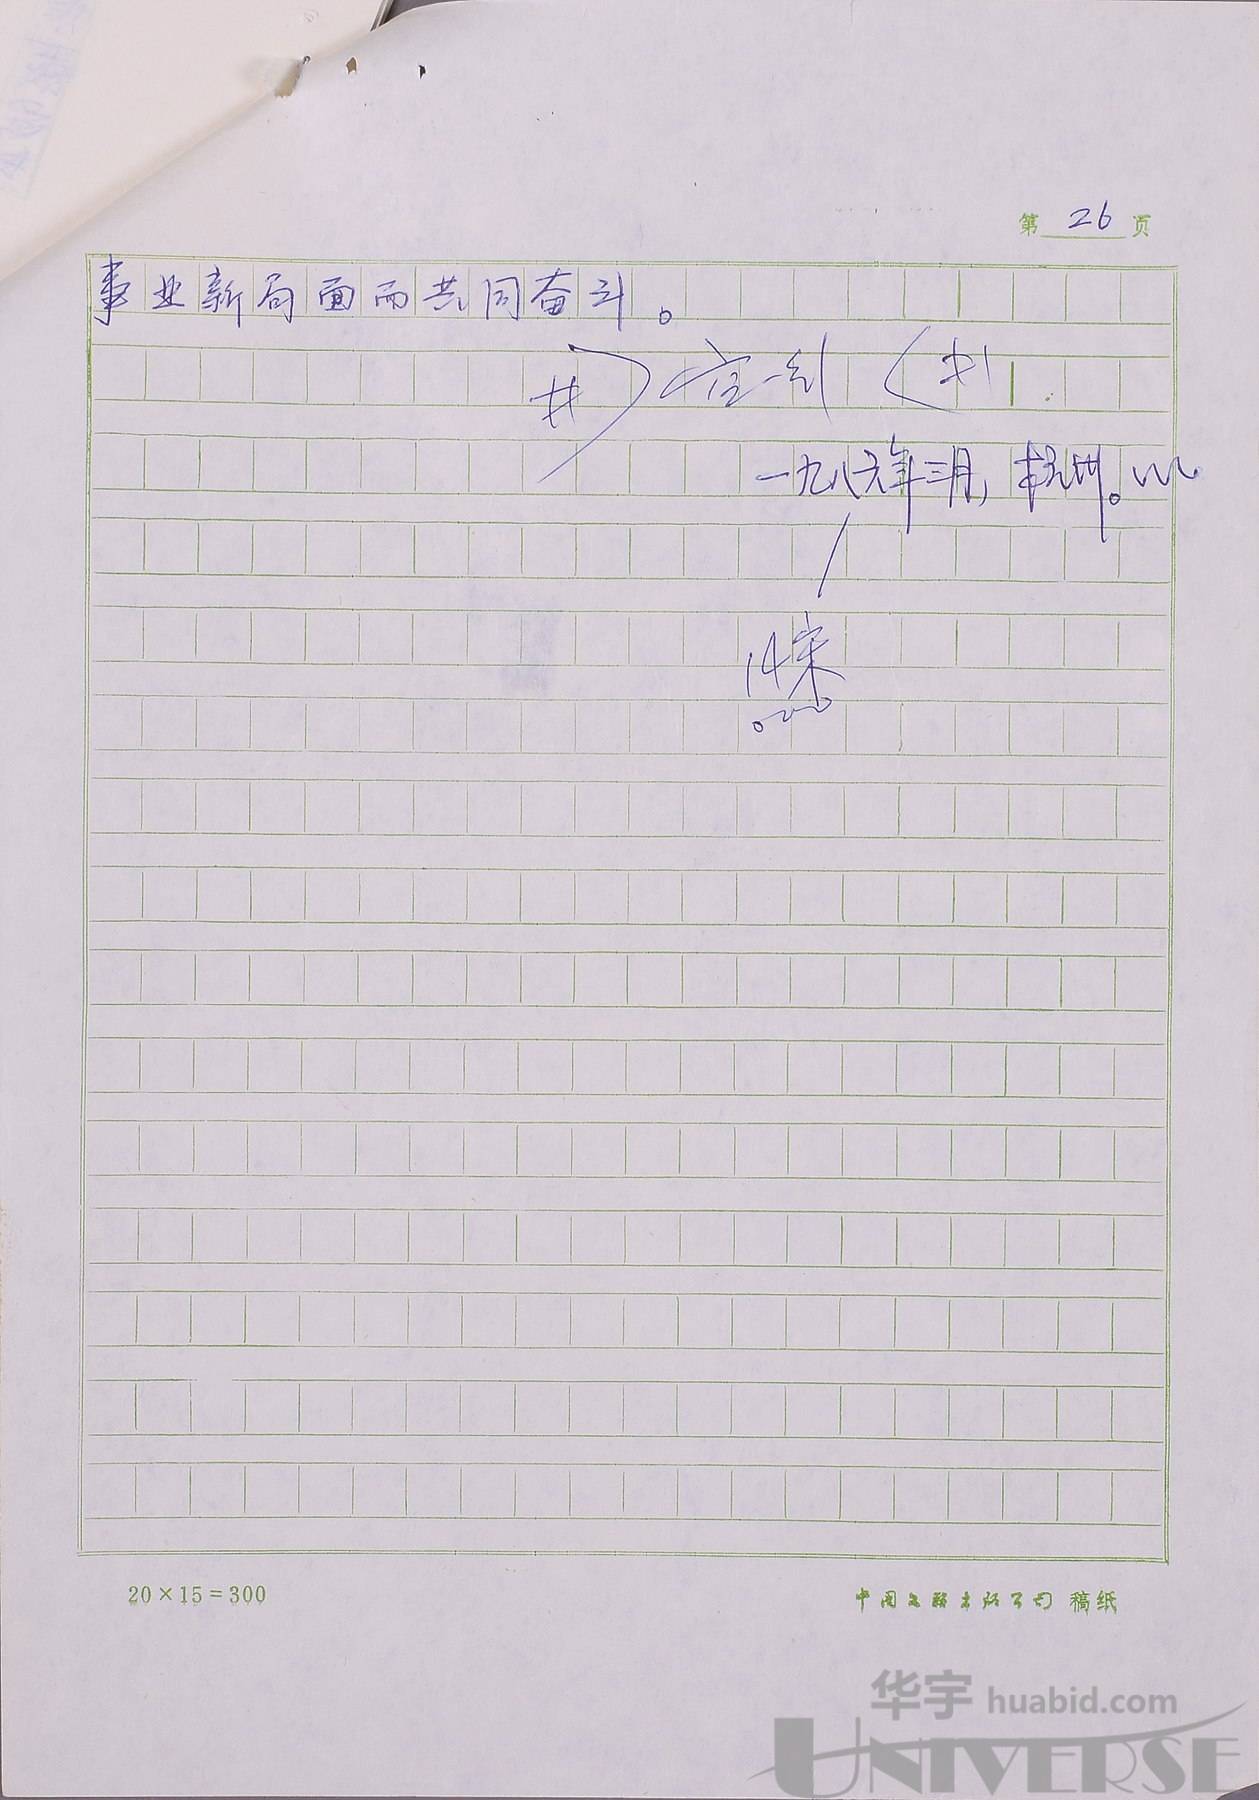 第 26 页
事业新局面而共同奋斗。
一九八六年三月，杭州。
14宋
20×15=300
中国文联出版公司 稿纸
华宇 huabid.com
UNIVERSE